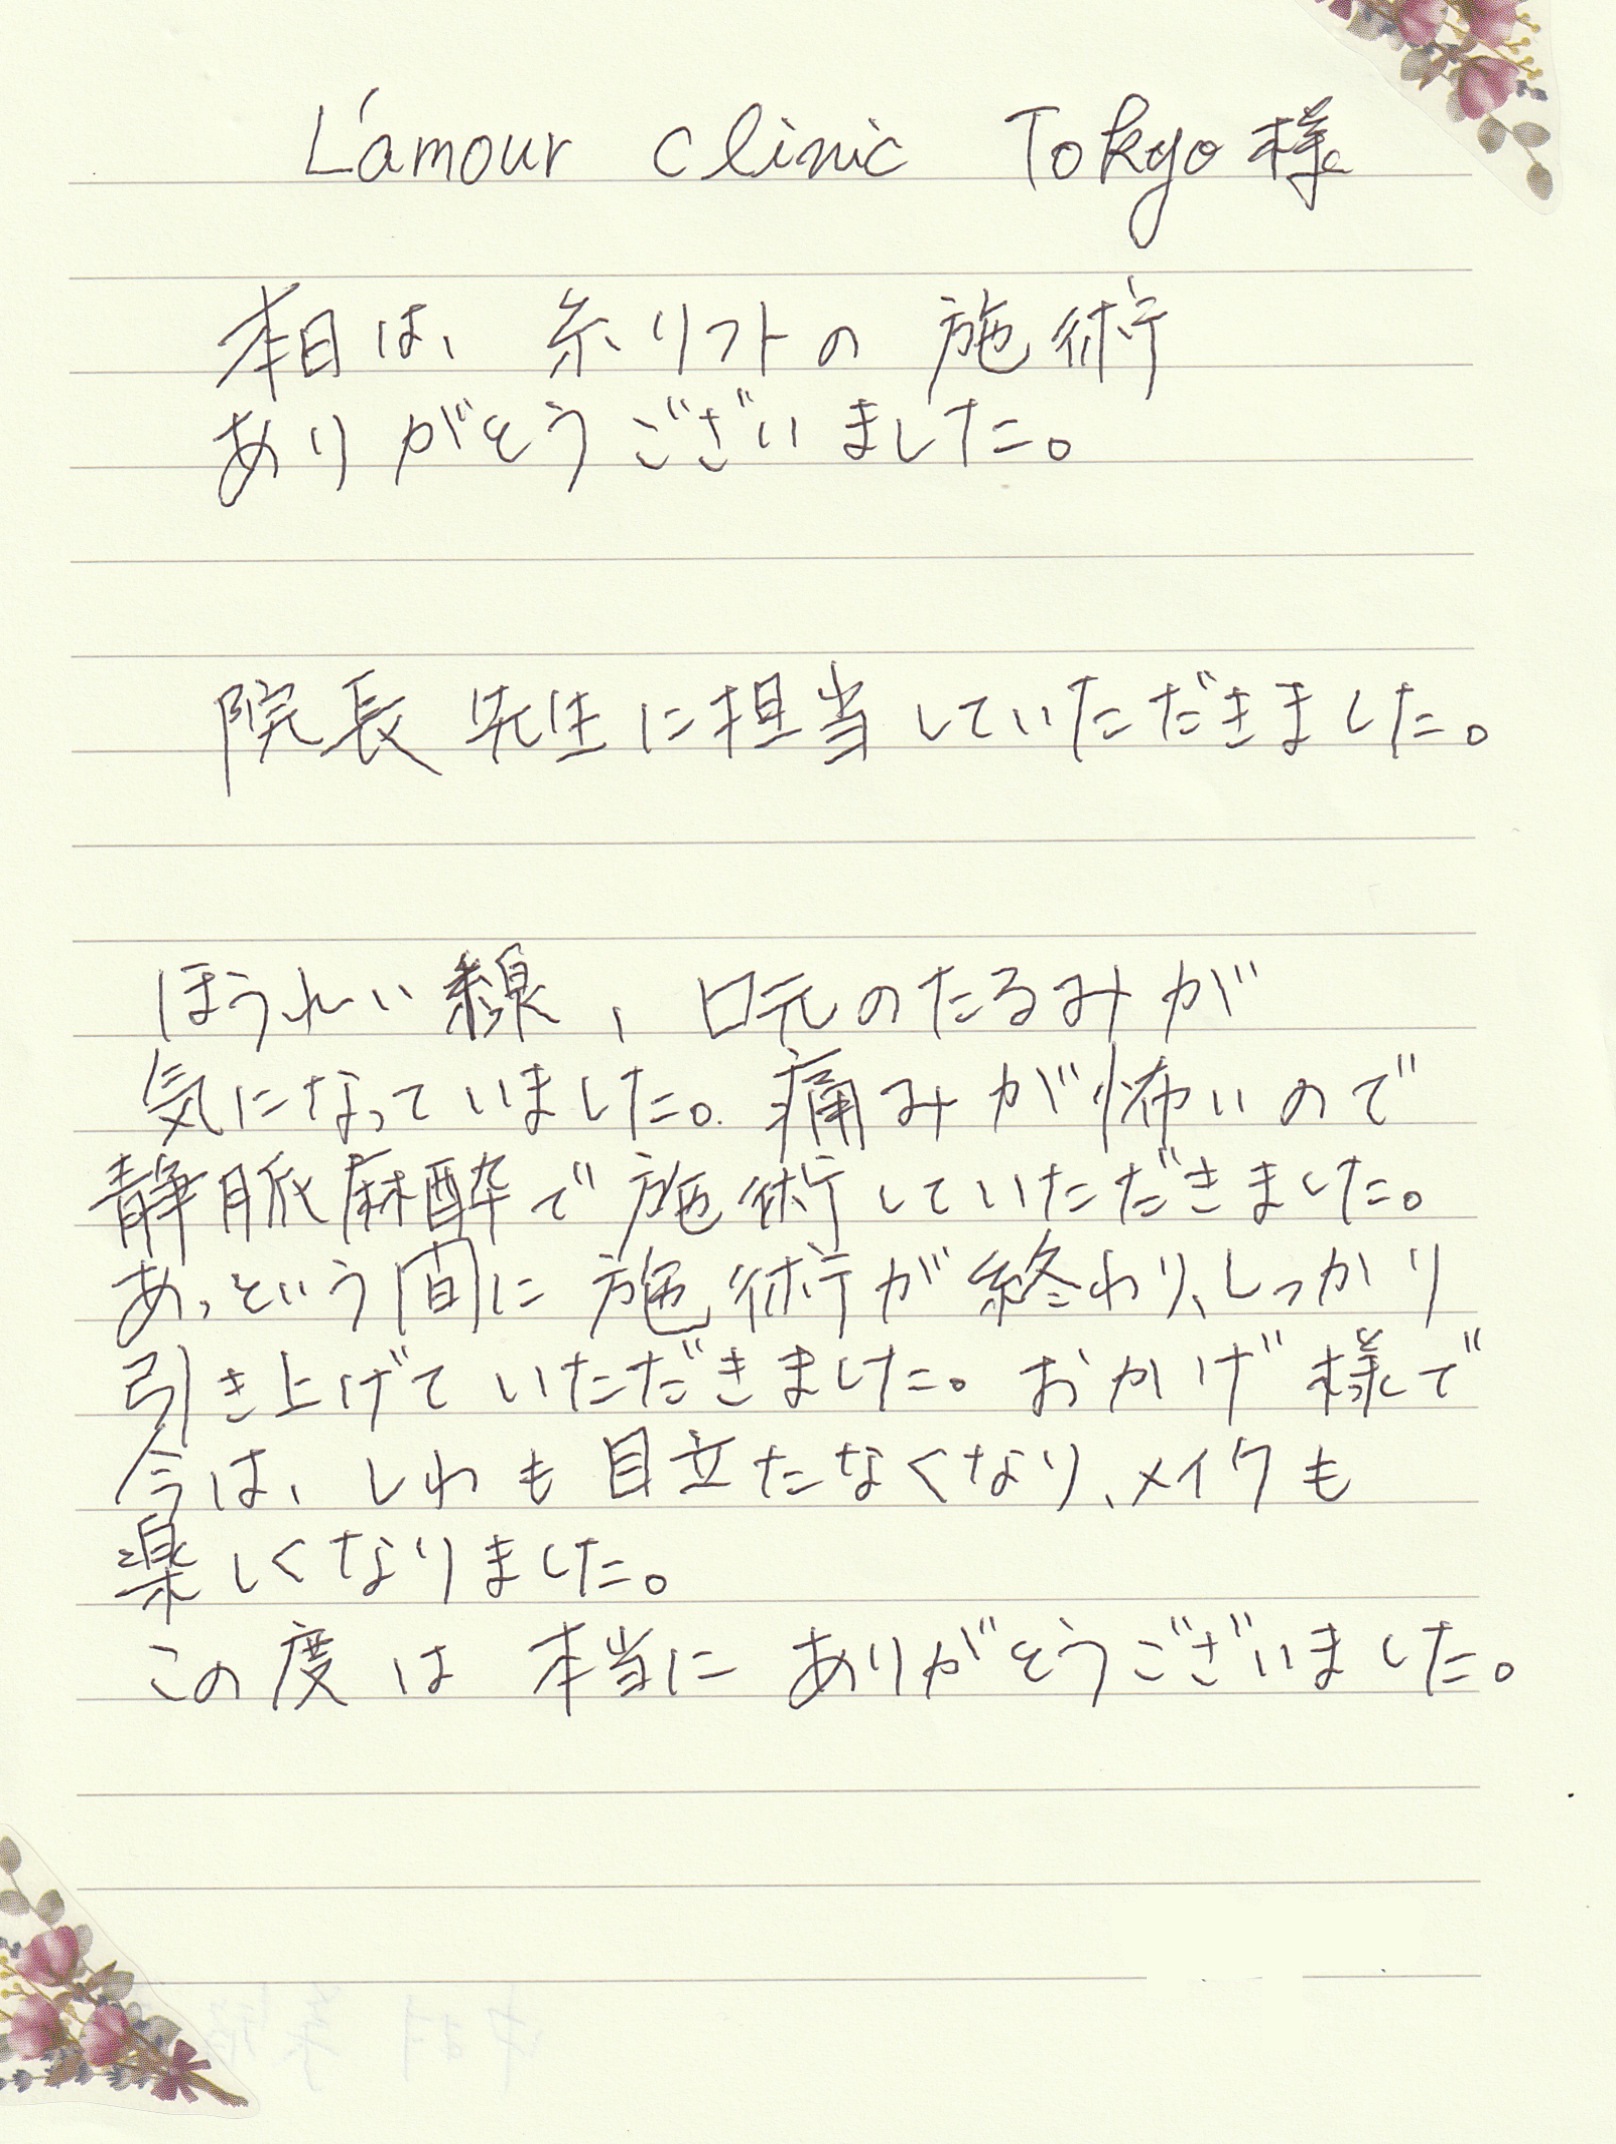 L'amour clinic Tokyo様
本日は、糸リフトの施術
ありがとうございました。
院長先生に担当していただきました。
ほうれい線、口元のたるみが
気になっていました。痛みが怖いので
静脈麻酔で施術していただきました。
あっという間に施術が終わり、しっかり
引き上げていただきました。おかげ様で
今は、しわも目立たなくなり、メイクも
楽しくなりました。
この度は本当にありがとうございました。